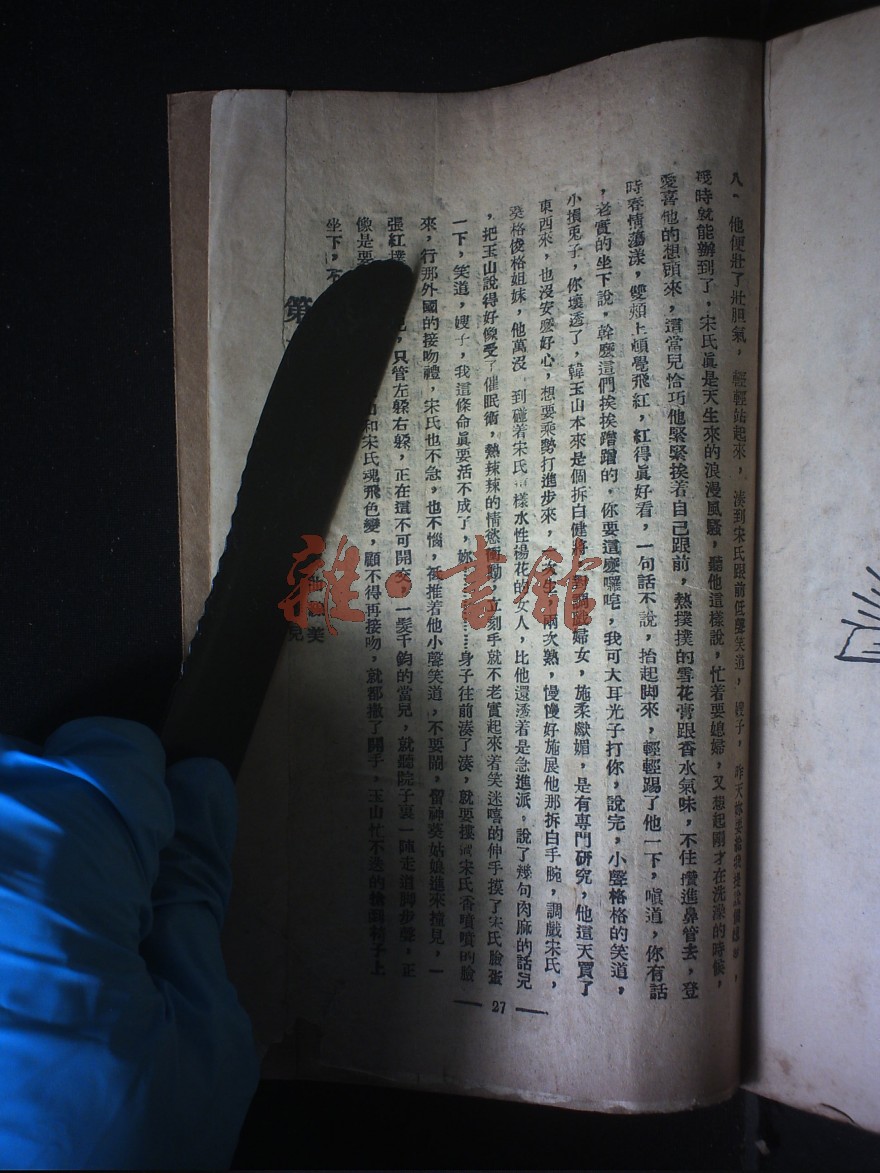 八、他便壯了壯胆氣，輕輕站起來，湊到宋氏跟前低聲笑道，嫂子，昨天
時就能辦到了，宋氏眞是天生來的浪漫風騷，聽他這樣說，忙着要媳婦，又想起剛才在洗澡的時候，
愛喜他的想頭來，這當兒恰巧他緊緊挨着自己跟前，熱撲撲的雪花膏跟香水氣味，不住攢進鼻管去，登
時春情蕩漾，雙頰上頓覺飛紅，紅得眞好看，一句話不說，抬起脚來，輕輕踢了他一下，嗔道，你有話
，老實的坐下說，幹麽這們挨挨蹭蹭的，你要這麽囉唣，我可大耳光子打你，說完，小聲格格的笑道，
小損兎子，你壞透了，韓玉山本來是個拆白健將，對調 婦女，施柔獻媚，是有專門研究，他這天買了
東西來，也沒安麽好心，想要乘勢打進步來，一次生，兩次熟，慢慢好施展他那拆白手腕，調戲宋氏，
葵格俊格姐妹，他萬沒 到碰着宋氏 樣水性楊花的女人，比他還透着是急進派，說了幾句肉麻的話兒
，把玉山說得好像受了催眠術，熱辣辣的情慾衝動，立刻手就不老實起來着笑迷嘻的伸手摸了宋氏臉蛋
一下，笑道，嫂子，我這條命眞要活不成了，妳 ……身子往前湊了湊，就要摟 宋氏香噴噴的臉
來，行那外國的接吻禮，宋氏也不急，也不惱，祗推着他小聲笑道，不要鬧，留神葵姑娘進來撞見，一
張紅撲 ，只管左躱右躱，正在這不可開交，一髮千鈞的當兒，就聽院子裏一陣走道脚步聲，正
像是要 和宋氏魂飛色變，顧不得再接吻，就都撒了開手，玉山忙不迭的 到椅子上
坐下，
第
美
兒
27
雜·書館